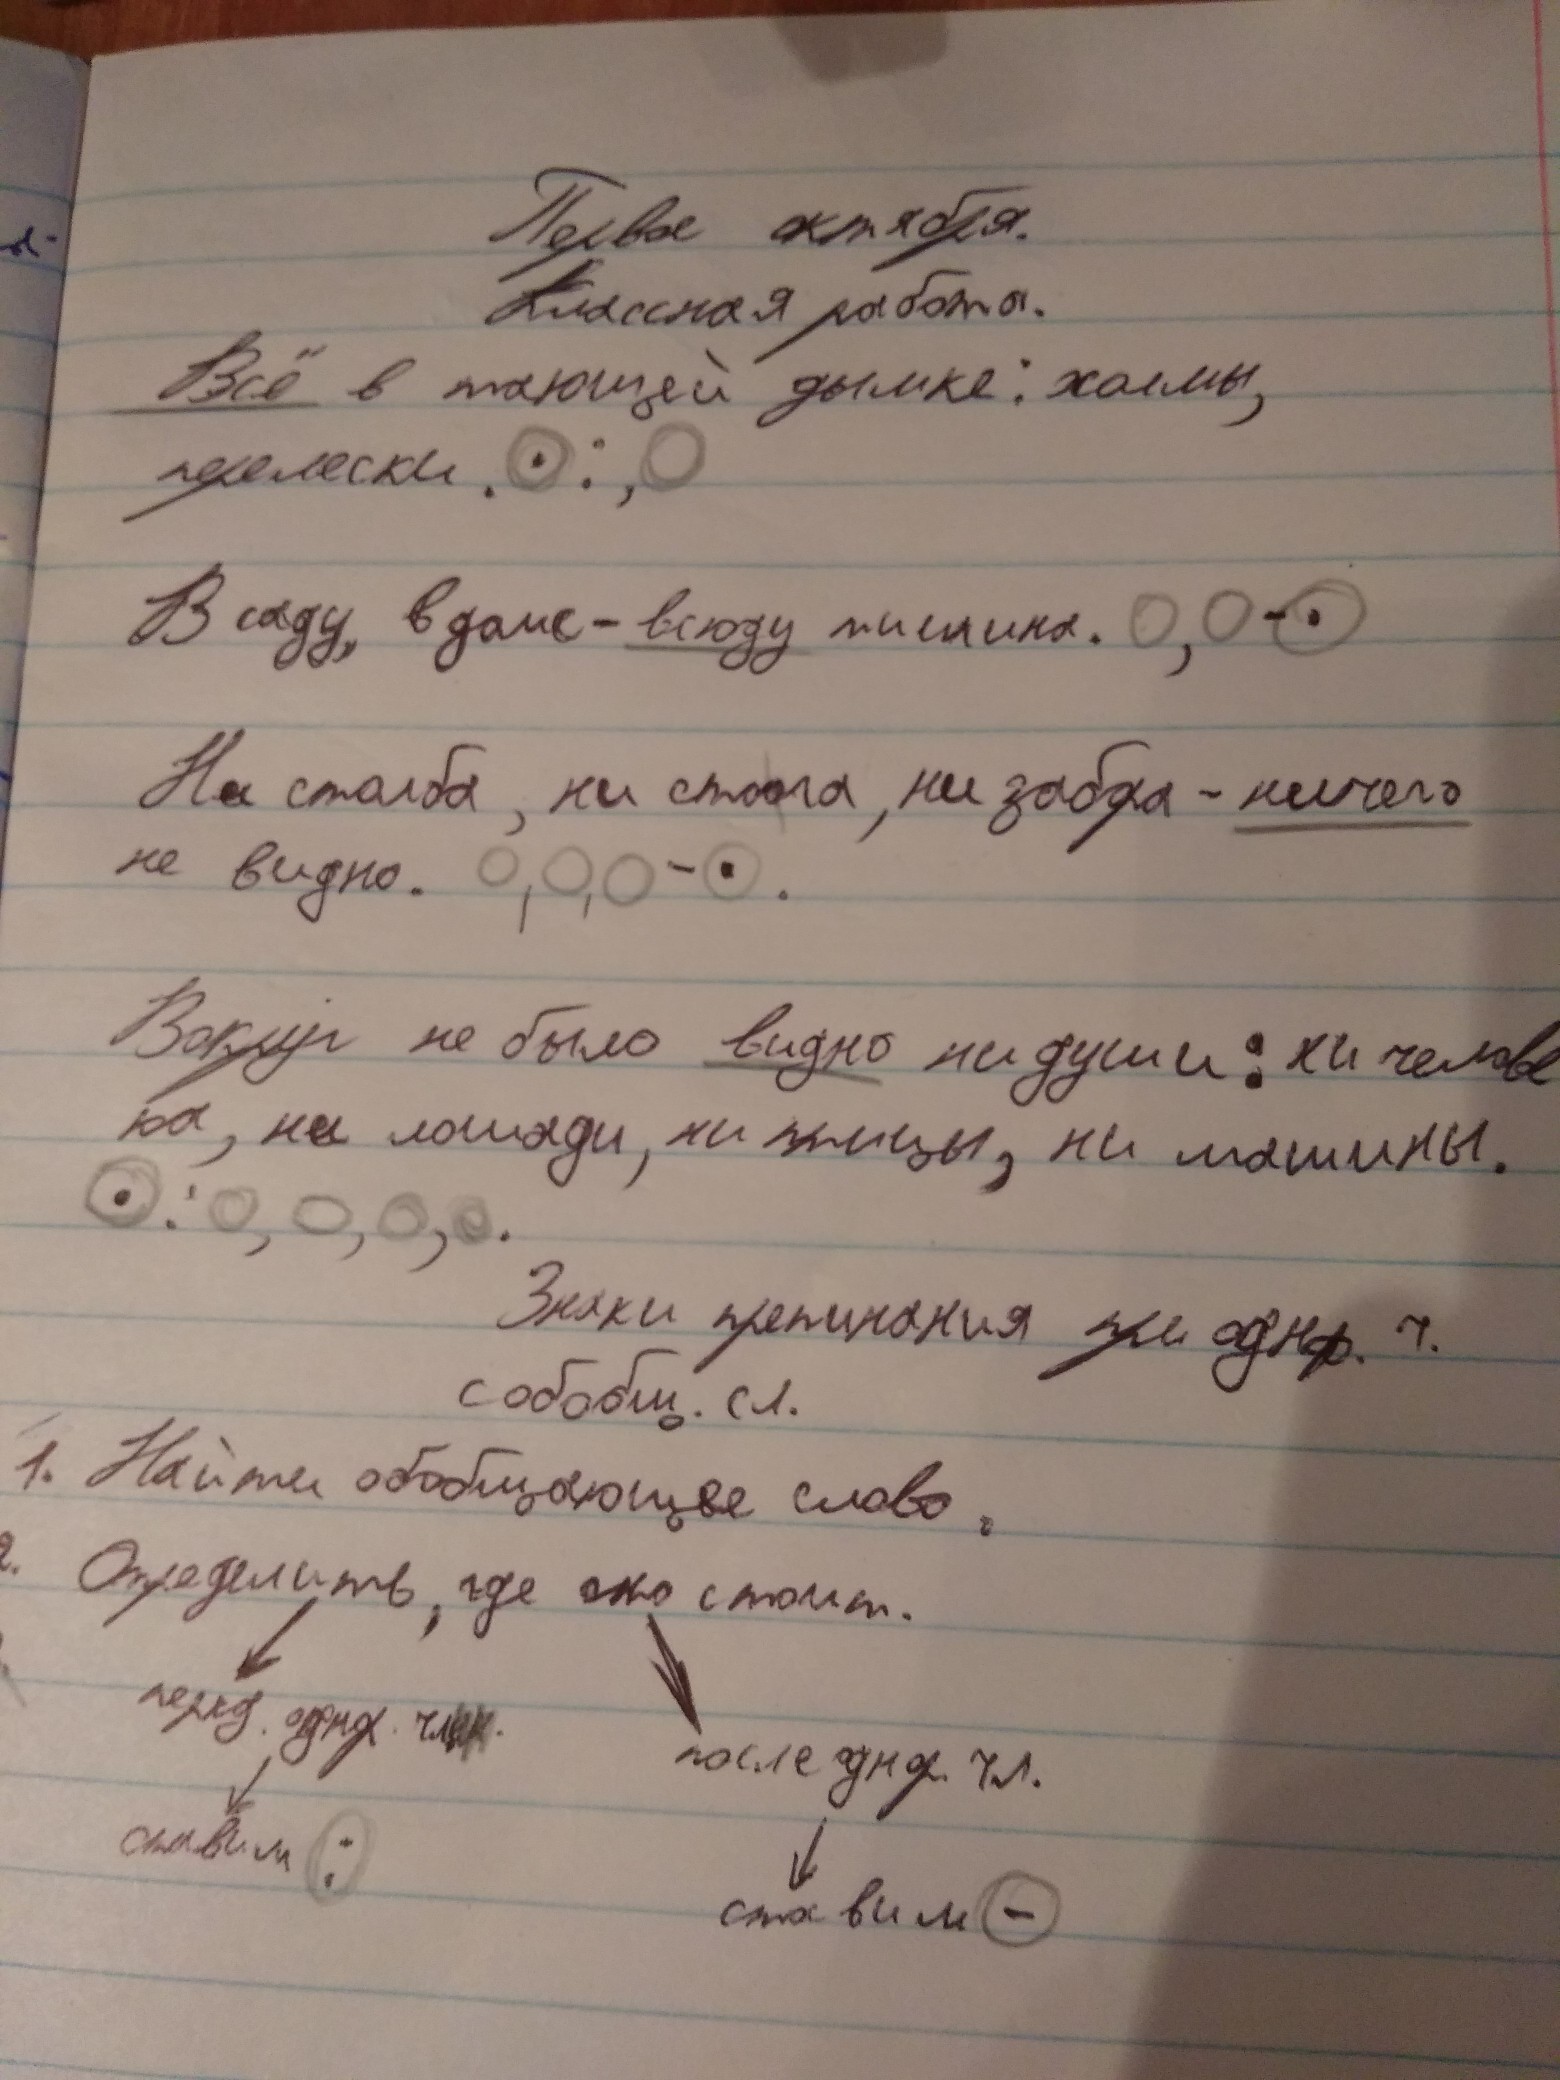 Первое октября.
Классная работа.
Всё в тающей дымке: холмы,
перелески. ⊙: , О
В саду, в доме - всюду тишина. О, О - ⊙
Ни столба, ни стога, ни забора - ничего
не видно. О, О, О - ⊙.
Вокруг не было видно ни души: ни челове
ка, ни лошади, ни птицы, ни машины.
⊙: О, О, О, О.
Знаки препинания при однр. ч.
с обобщ. сл.
1. Найти обобщающее слово.
2. Определить, где оно стоит.
перед. однр. чл.
после однр. чл.
ставим :
ставим -